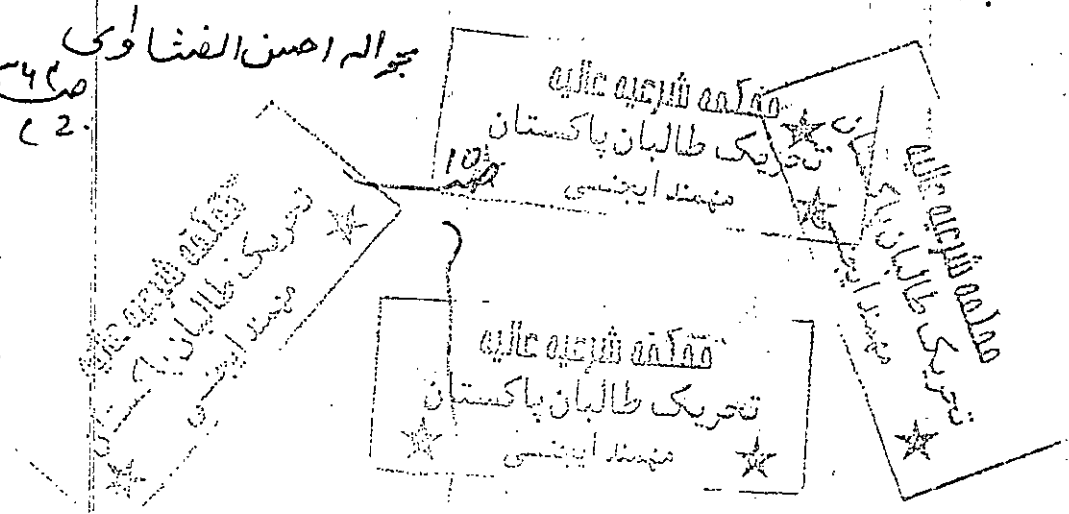 بحوالہ احسن الفتاوی
محکمه شرعیه عالیه
تحریک طالبان پاکستان
مہمند ایجنسی
محکمه شرعیه عالیه
تحریک طالبان پاکستان
مہمند ایجنسی
محکمه شرعیه عالیه
تحریک طالبان
مہمند
محکمه شرعیه عالیه
تحریک طالبان پاکستان
مہمند ایجنسی